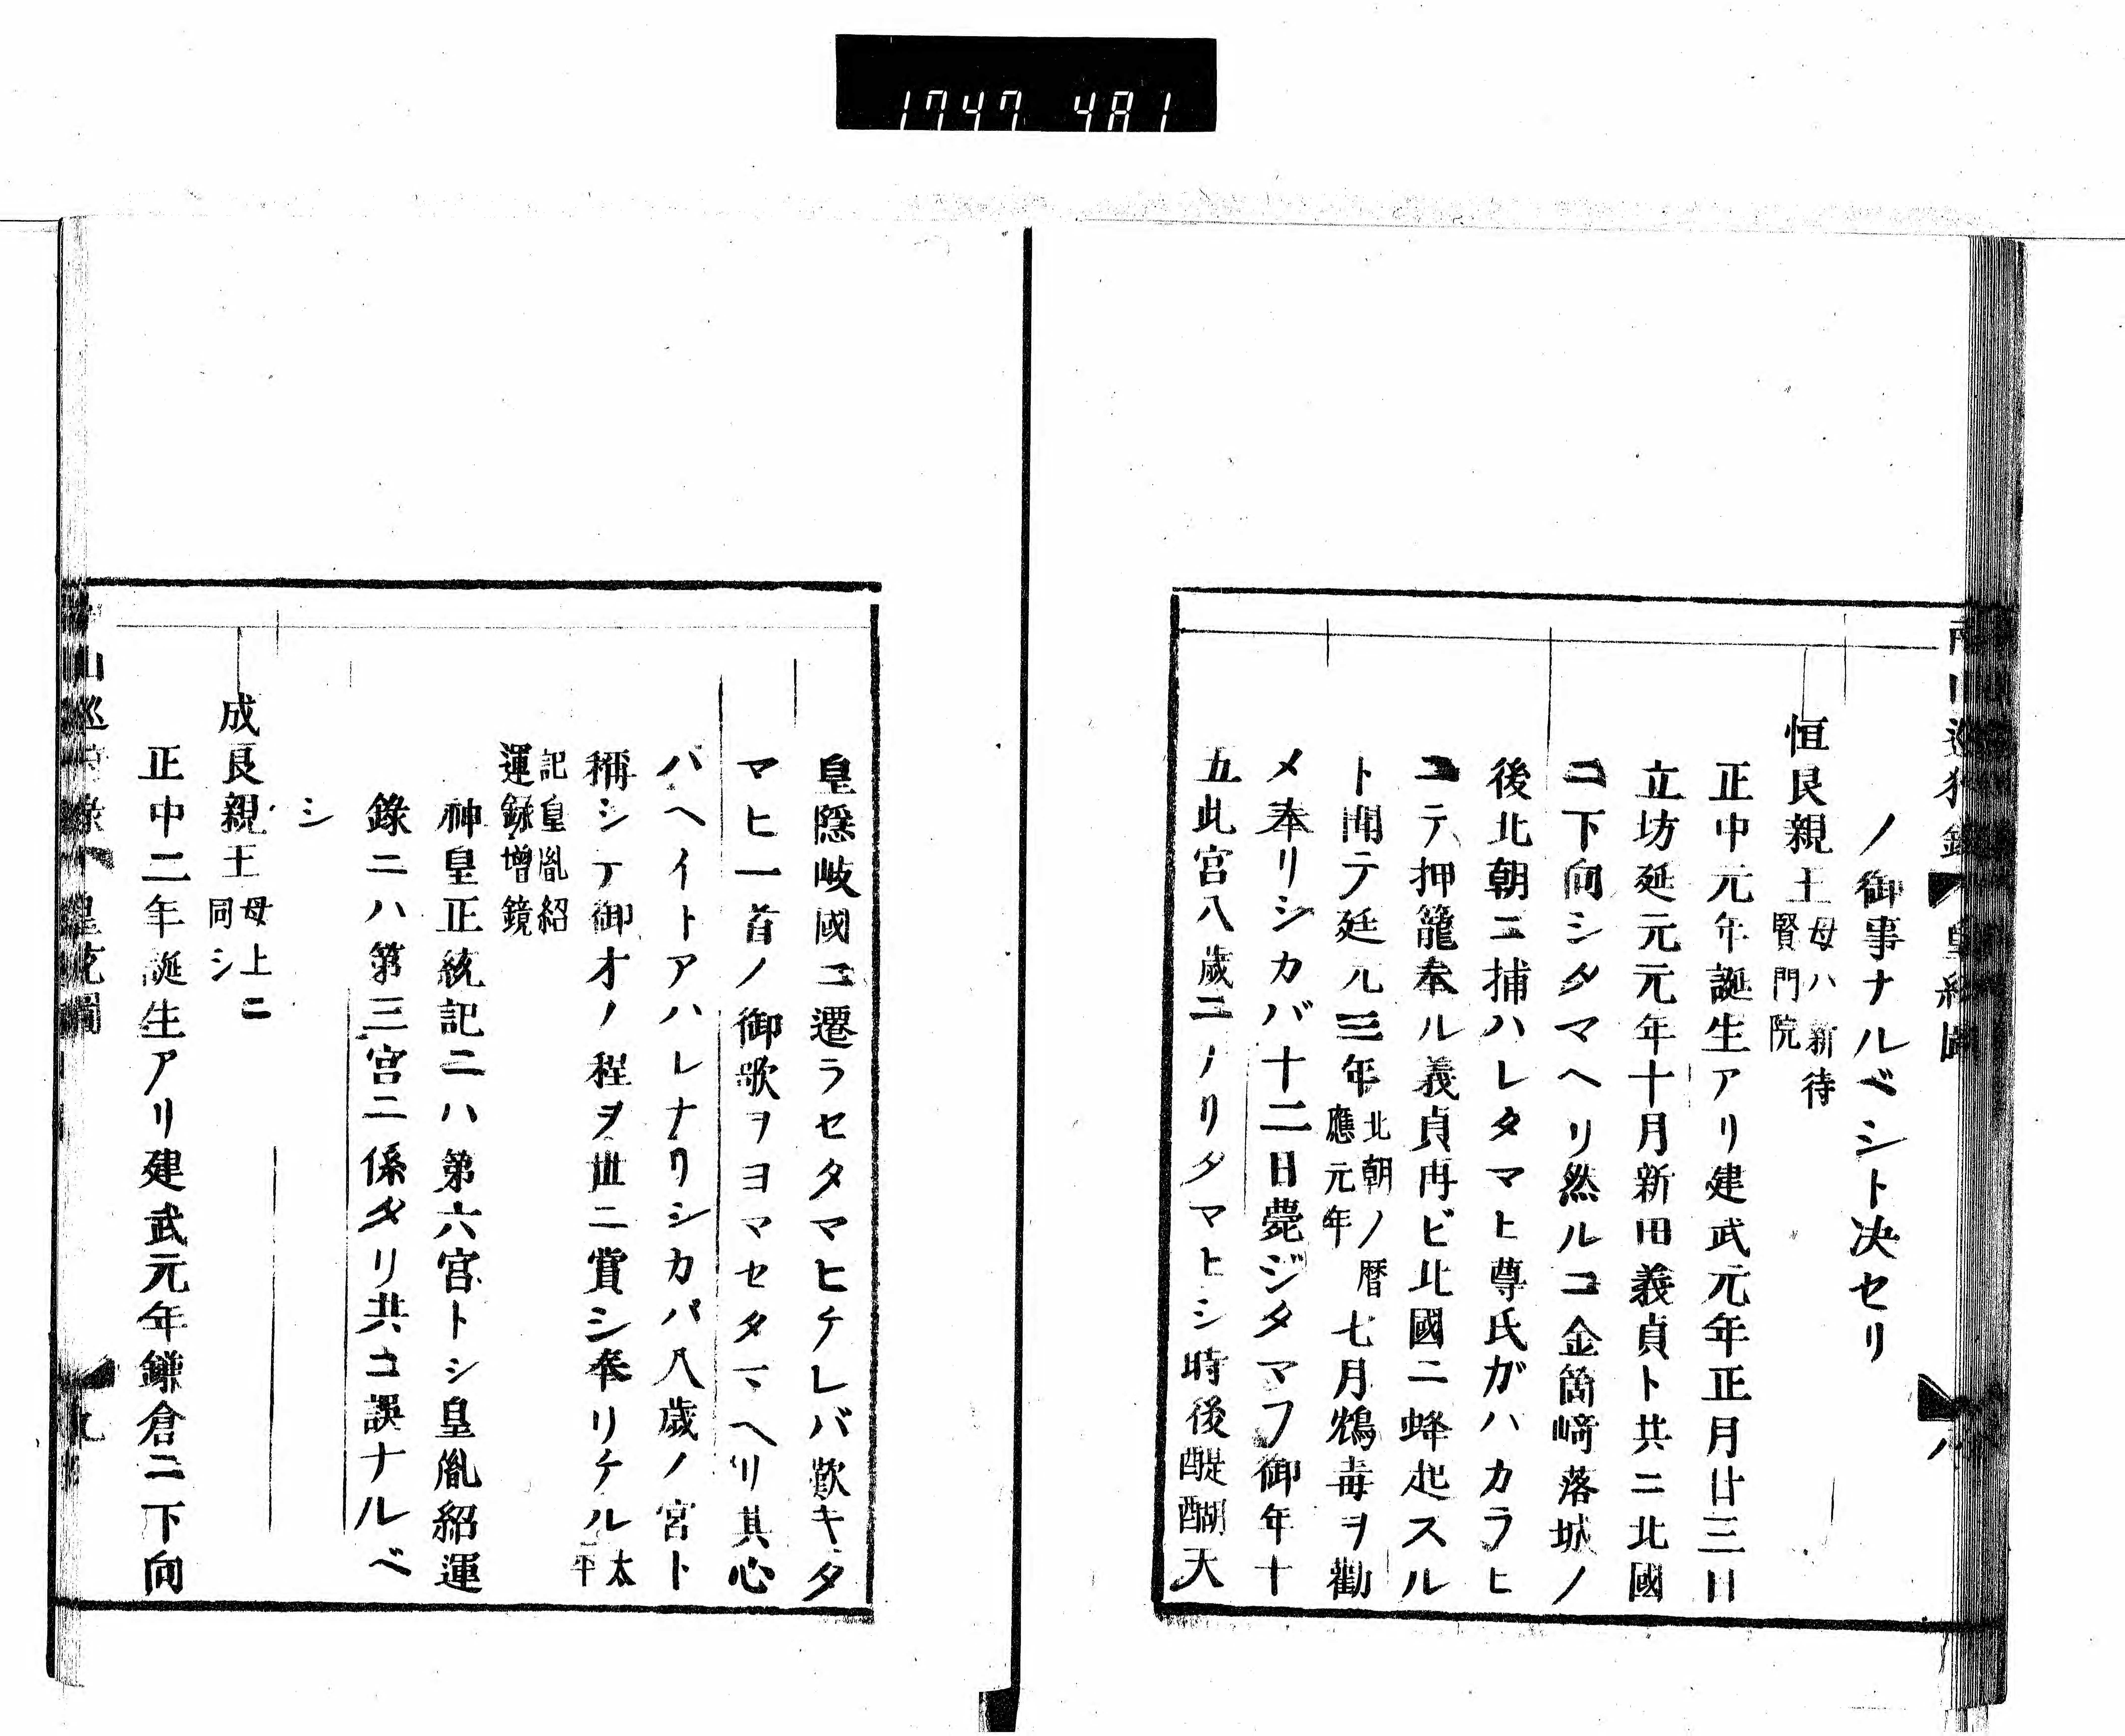 1747 481
ノ御事ナルベシト决セリ
恒良親王 母ハ新待賢門院
正中元年誕生アリ建武元年正月廿三日
立坊延元元年十月新田義貞ト共ニ北國
ニ下向シタマヘリ然ルニ金箇﨑落城ノ
後北朝ニ捕ハレタマヒ尊氏ガハカラヒ
ニテ押籠奉ル義貞再ビ北國ニ蜂起スル
ト聞テ延元三年 北朝ノ暦應元年 七月鴆毒ヲ勸
メ奉リシカバ十二日薨ジタマフ御年十
五此宮八歳ニナリタマヒシ時後醍醐天
皇隱岐國ニ遷ラセタマヒケレバ歎キタ
マヒ一首ノ御歌ヲヨマセタマヘリ其心
バヘイトアハレナリシカバ八歳ノ宮ト
稱シテ御才ノ程ヲ世ニ賞シ奉リケル 太平
記皇胤紹運録増鏡
神皇正統記ニハ第六宮トシ皇胤紹運
錄ニハ第三宮ニ係タリ共ニ誤ナルベ
シ
成良親王 母上ニ同シ
正中二年誕生アリ建武元年鎌倉ニ下向